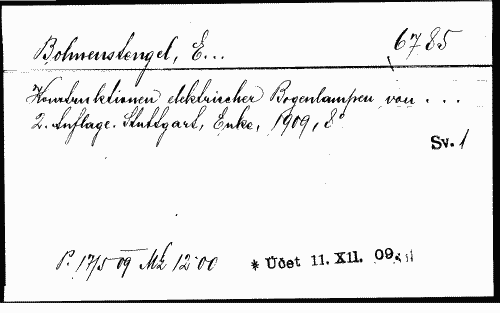 Bohnenstengel, E... 6785
Konstruktionen elektrischer Bogenlampen von ...
2. Auflage. Stuttgart, Enke, 1909, 8°
Sv. 1
P. 17/5 09 Mk 12·00 * Účet 11. XII. 09.